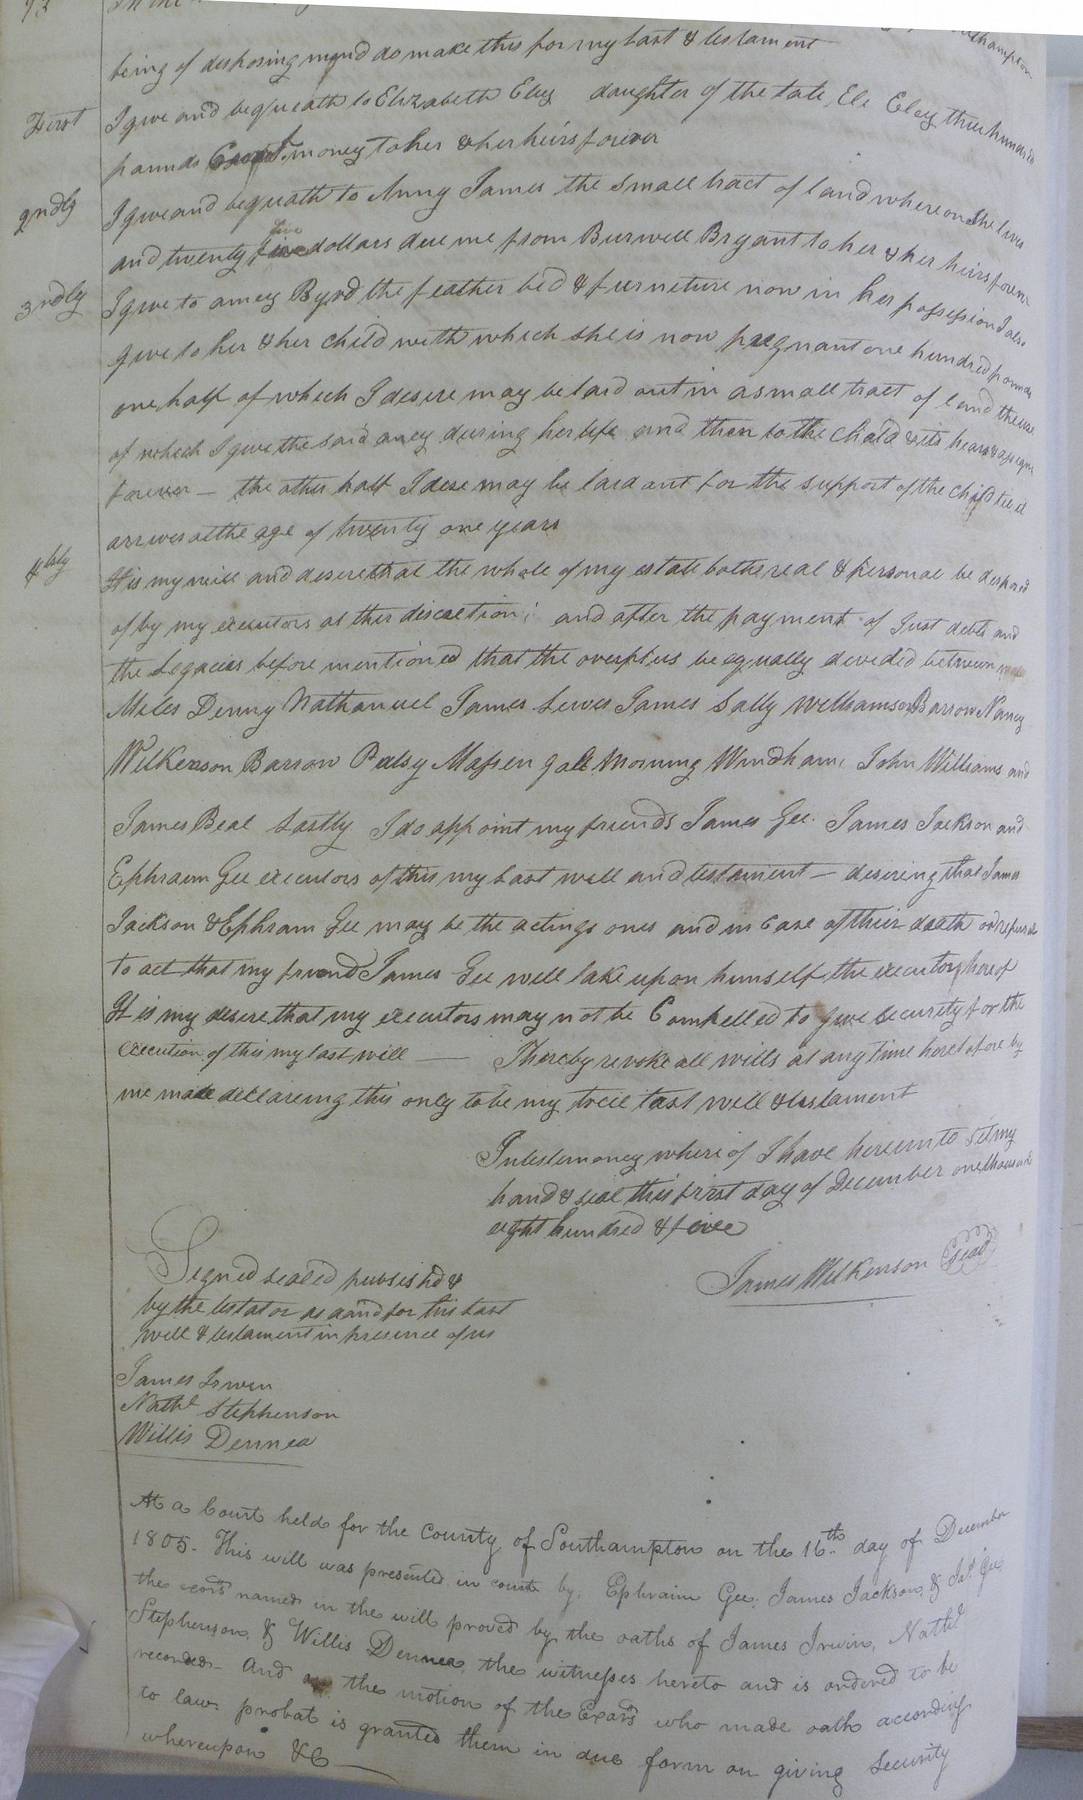 93 In the
Southampton
being of disposing mind do make this for my Last & testament
First I give and bequeath to Elizabeth Eley daughter of the late Eli Eley three hundred
pounds Currt. money to her & her heirs forever
2ndly I give and bequeath to Anny James the small tract of land whereon She lives
and twenty five five dollars due me from Burwell Bryant to her & her heirs forever
3rdly I give to amey Byrd the feather bed & furneture now in her possession I also
give to her & her child with which she is now pregnant one hundred pounds
one half of which I desire may be laid out in a small tract of land the use
of which I give the said amey during her life and then to the child & its heirs & assigns
forever — the other half I desire may be laid out for the support of the child till it
arrives at the age of twenty one years
4thly It is my will and desire that the whole of my estate both real & personal be disposed
of by my executors at their discretion; and after the payment of Just debts and
the Legacies before mentioned that the overplus be equally devided between
Miles Denny Nathanuel James Lewis James Sally Williamson Barrow Nancy
Wilkerson Barrow Patsy Massengale Morning Windham, John Williams and
James Beal Lastly I do appoint my friends James Gee. James Jackson and
Ephraim Gee executors of this my Last will and testament — desiring that James
Jackson & Ephram Gee may be the actings ones and in Case of their death or refusal
to act that my friend James Gee will take upon himself the executorship hereof
It is my desire that my executors may not be Compelled to give Security for the
execution of this my last will — I hereby revoke all wills at any time heretofore by
me made declareing this only to be my trúe last will & testament
In testemoney where of I have hereunto Set my
hand & seal this first day of December one thousand
eight hundred & five
James Wilkerson Seal
Signed sealed published &
by the testator as and for his Last
will & testament in presence of us
James Irwin
Nathl Stephenson
Willis Dennea
At a Court held for the County of Southampton on the 16th. day of December
1805. This will was presented in court by Ephraim Gee, James Jackson, & Jas. Gee
the exors named in the will proved by the oaths of James Irwin, Nathl
Stephenson & Willis Dennea the witnesses hereto and is ordered to be
recorded— And on the motion of the Exors who made oath according
to law. probat is granted them in due form on giving Security
whereupon &C —